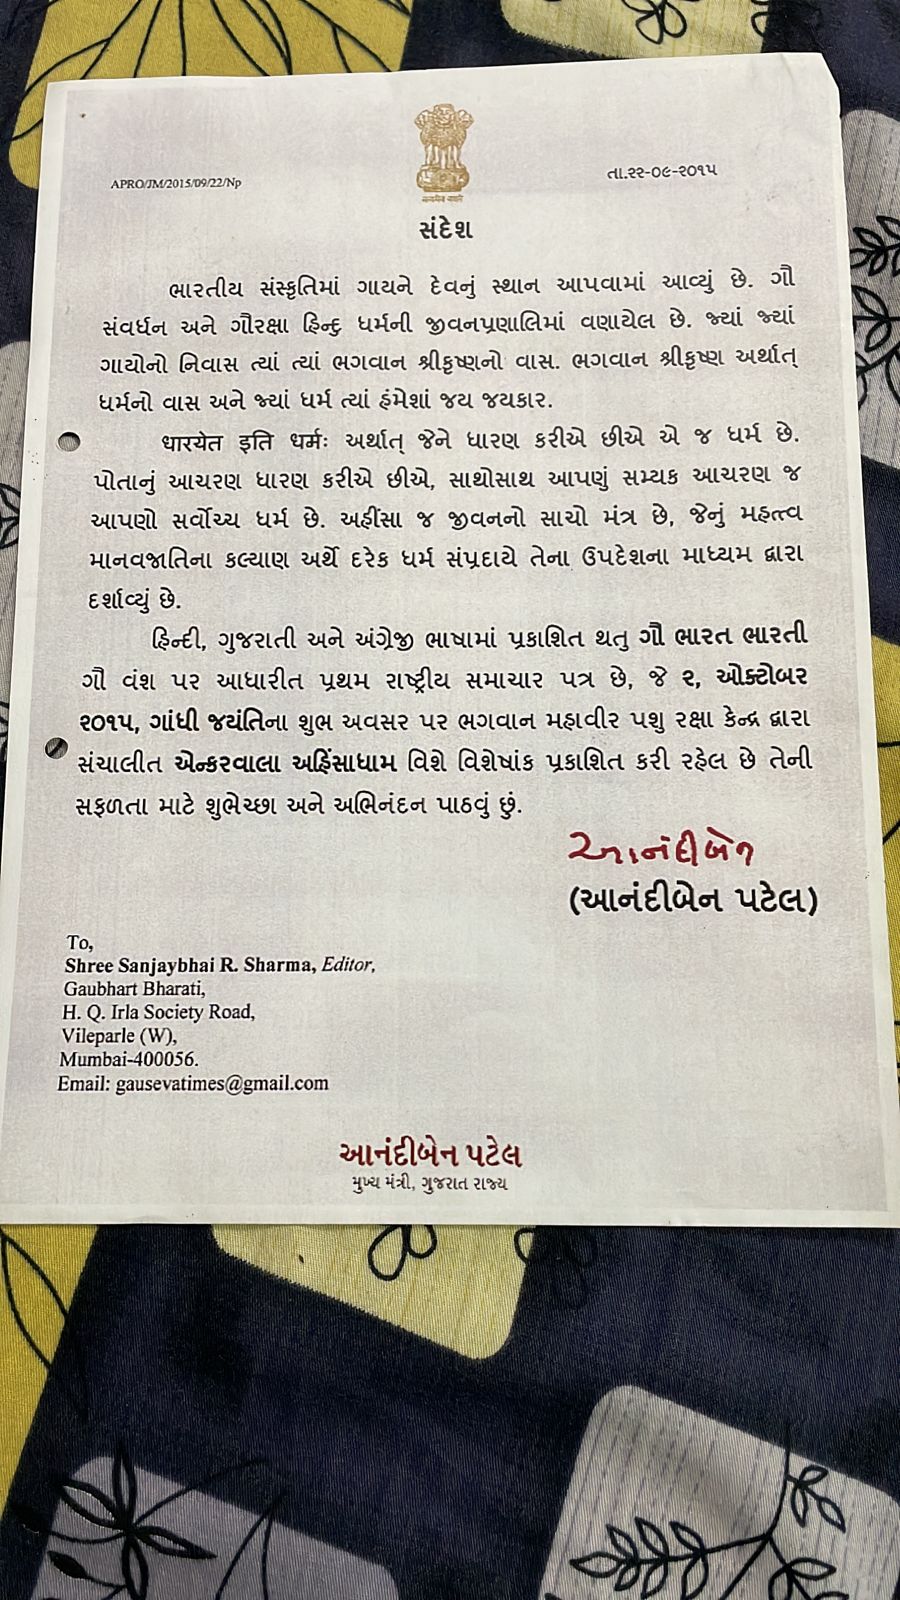 APRO/JM/2015/09/22/Np
તા.૨૨-૦૯-૨૦૧૫
सत्यमेव जयते
સંદેશ
ભારતીય સંસ્કૃતિમાં ગાયને દેવનું સ્થાન આપવામાં આવ્યું છે. ગૌ
સંવર્ધન અને ગૌરક્ષા હિન્દુ ધર્મની જીવનપ્રણાલિમાં વણાયેલ છે. જ્યાં જ્યાં
ગાયોનો નિવાસ ત્યાં ત્યાં ભગવાન શ્રીકૃષ્ણનો વાસ. ભગવાન શ્રીકૃષ્ણ અર્થાત્
ધર્મનો વાસ અને જ્યાં ધર્મ ત્યાં હંમેશાં જય જયકાર.
धारयेत इति धर्मः અર્થાત્ જેને ધારણ કરીએ છીએ એ જ ધર્મ છે.
પોતાનું આચરણ ધારણ કરીએ છીએ, સાથોસાથ આપણું સમ્યક આચરણ જ
આપણો સર્વોચ્ચ ધર્મ છે. અહીંસા જ જીવનનો સાચો મંત્ર છે, જેનું મહત્ત્વ
માનવજાતિના કલ્યાણ અર્થે દરેક ધર્મ સંપ્રદાયે તેના ઉપદેશના માધ્યમ દ્વારા
દર્શાવ્યું છે.
હિન્દી, ગુજરાતી અને અંગ્રેજી ભાષામાં પ્રકાશિત થતુ ગૌ ભારત ભારતી
ગૌ વંશ પર આધારીત પ્રથમ રાષ્ટ્રીય સમાચાર પત્ર છે, જે ૨, ઓક્ટોબર
૨૦૧૫, ગાંધી જયંતિના શુભ અવસર પર ભગવાન મહાવીર પશુ રક્ષા કેન્દ્ર દ્વારા
સંચાલીત એન્કરવાલા અહિંસાધામ વિશે વિશેષાંક પ્રકાશિત કરી રહેલ છે તેની
સફળતા માટે શુભેચ્છા અને અભિનંદન પાઠવું છું.
આનંદીબેન
(આનંદીબેન પટેલ)
To,
Shree Sanjaybhai R. Sharma, Editor,
Gaubhart Bharati,
H. Q. Irla Society Road,
Vileparle (W),
Mumbai-400056.
Email: gausevatimes@gmail.com
આનંદીબેન પટેલ
મુખ્ય મંત્રી, ગુજરાત રાજ્ય